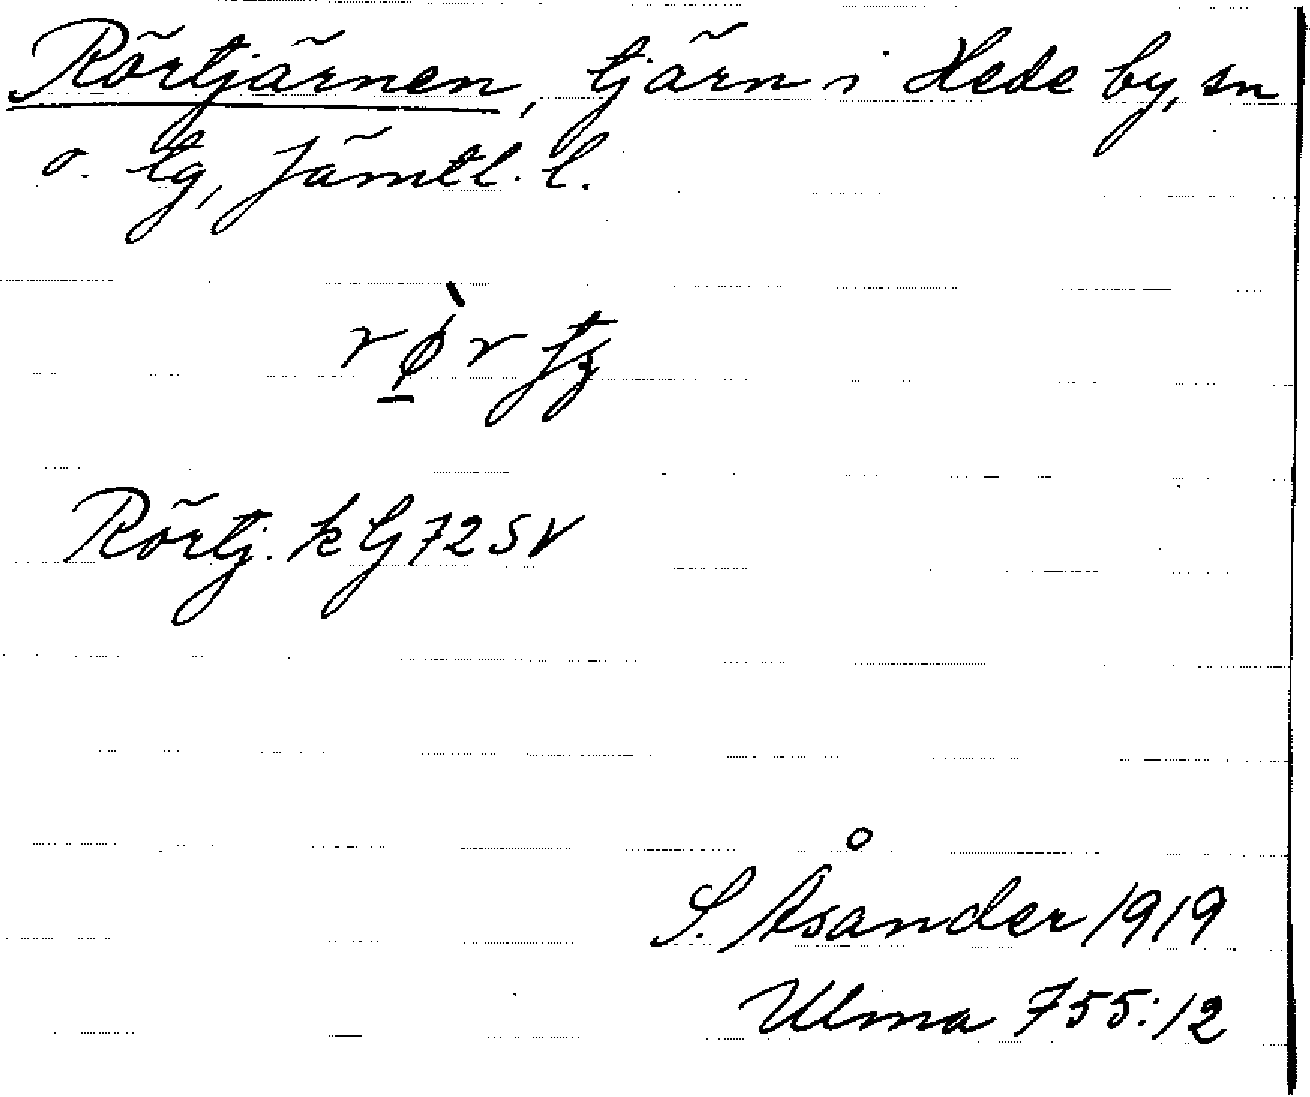 Rörtjärnen, tjärn i Hede by, sn
o. tg, Jämtl. l.
Rörtj. k G 72 SV
S. Åsander 1919
Ulma 755:12